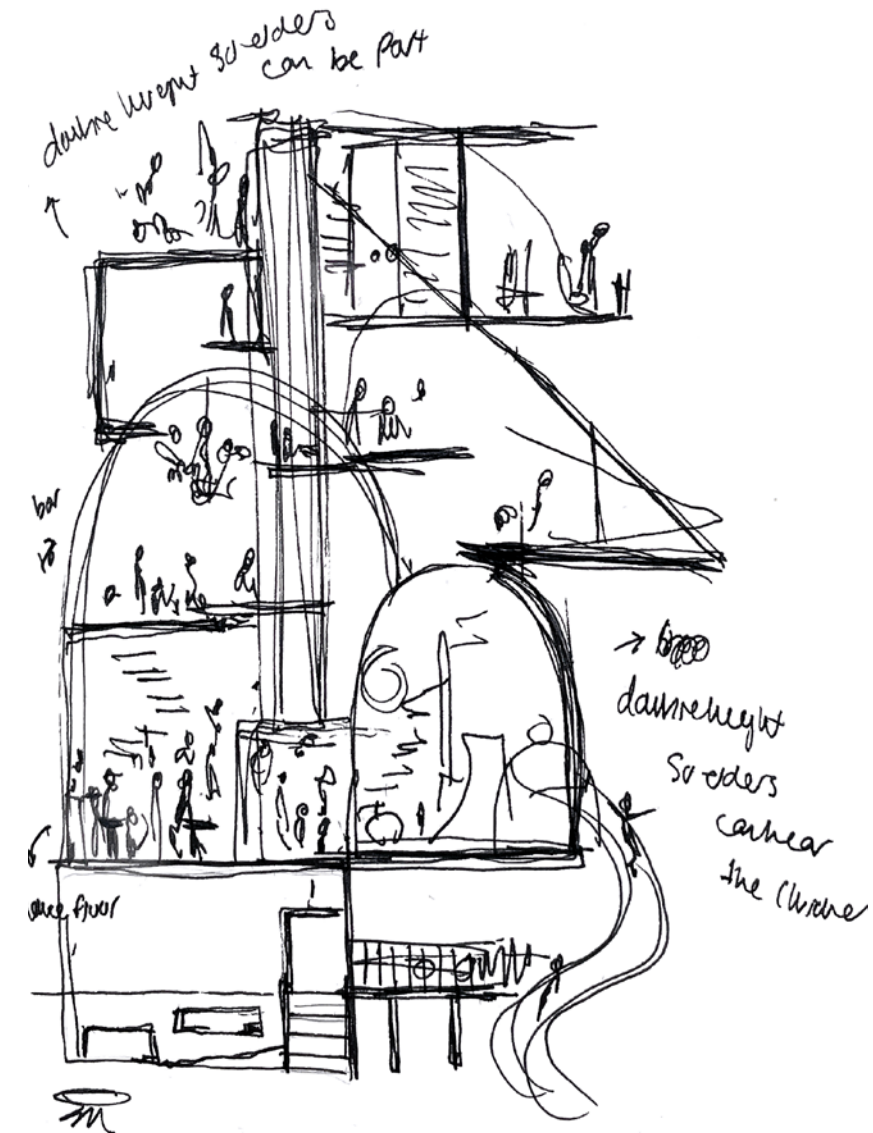 double height so elders
can be part
bar
double height
so elders
can hear
the
floor